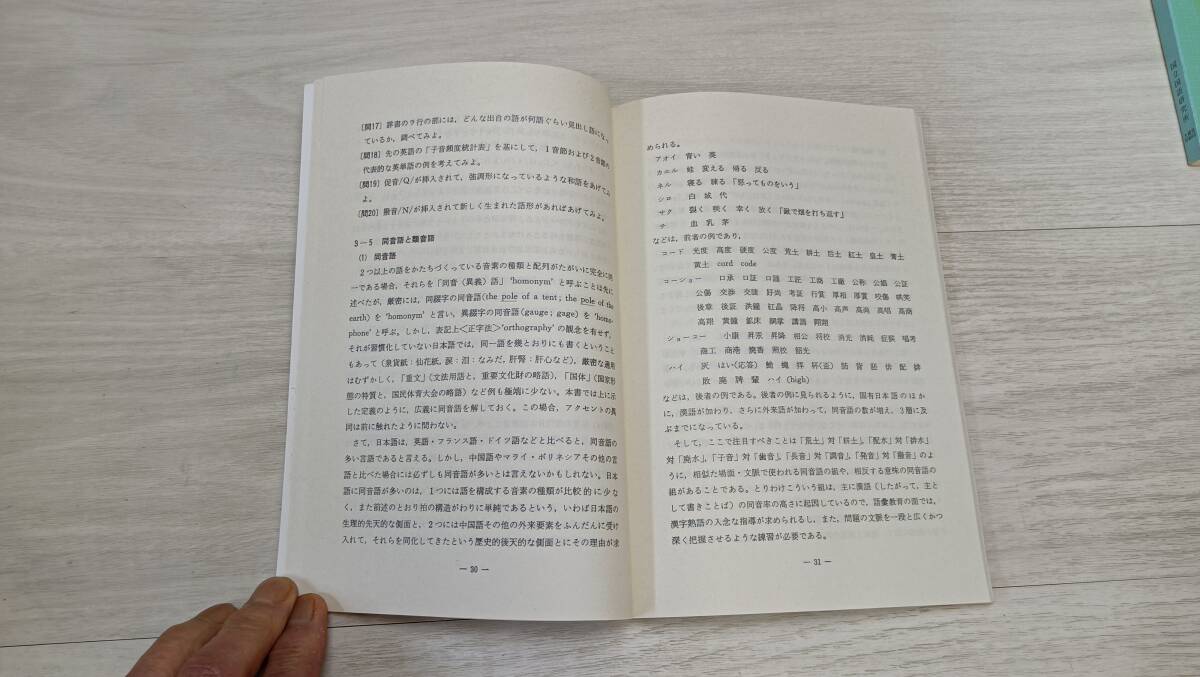 〔問17〕 辞書のラ行の部には，どんな出自の語が何語ぐらい見出し語になっ
ているか，調べてみよ。
〔問18〕 先の英語の「子音頻度統計表」を基にして，1音節および2音節の
代表的な英単語の例を考えてみよ。
〔問19〕 促音/Q/が挿入されて，強調形になっているような和語をあげてみ
よ。
〔問20〕 撥音/N/が挿入されて新しく生まれた語形があればあげてみよ。
3－5 同音語と類音語
(1) 同音語
2つ以上の語をかたちづくっている音素の種類と配列がたがいに完全に同
一である場合，それらを「同音（異義）語」'homonym' と呼ぶことは先に
述べたが，厳密には，同綴字の同音語(the pole of a tent ; the pole of the
earth) を 'homonym' と言い，異綴字の同音語(gauge ; gage) を 'homo-
phone' と呼ぶ。しかし，表記上＜正字法＞'orthography' の観念を有せず，
それが習慣化していない日本語では，同一語を幾とおりにも書くということ
もあって（泉貨紙：仙花紙，涙：泪：なみだ，肝腎：肝心など），厳密な適用
はむずかしく，「重文」（文法用語と，重要文化財の略語），「国体」（国家形
態の特質と，国民体育大会の略語）など例も極端に少ない。本書では上に示
した定義のように，広義に同音語を解しておく。この場合，アクセントの異
同は前に触れたように問わない。
さて，日本語は，英語・フランス語・ドイツ語などと比べると，同音語の
多い言語であると言える。しかし，中国語やマライ・ポリネシアその他の言
語と比べた場合には必ずしも同音語が多いとは言えないかもしれない。日本
語に同音語が多いのは，1つには語を構成する音素の種類が比較的に少な
く，また前述のとおり拍の構造がわりに単純であるという，いわば日本語の
生理的先天的な側面と，2つには中国語その他の外来要素をふんだんに受け
入れて，それらを同化してきたという歴史的後天的な側面とにその理由が求
— 30 —
められる。
アオイ 青い 葵
カエル 蛙 変える 帰る 反る
ネル 寝る 練る 「怒ってものをいう」
シロ 白 城 代
サク 裂く 咲く 幸く 放く 「鍬で畑を打ち返す」
チ 血 乳 茅
などは，前者の例であり，
コード 光度 高度 硬度 公度 荒土 耕土 后土 紅土 皇土 膏土
黄土 cord code
コーショー 口承 口証 口誦 工匠 工商 工廠 公称 公娼 公証
公傷 交渉 交鈔 好尚 考証 行賞 厚相 厚賞 咬傷 哄笑
後章 後証 洪鐘 紅晶 降将 高小 高声 高尚 高唱 高商
高翔 黄鐘 鉱床 綱掌 講誦 翺翔
ショーコー 小康 昇汞 昇降 相公 将校 消光 消耗 症候 唱考
商工 商港 焼香 照校 韶光
ハイ 灰 はい(応答) 鮠 蠅 拝 杯(盃) 肺 背 胚 俳 配 排
敗 廃 牌 輩 ハイ (high)
などは，後者の例である。後者の例に見られるように，固有日本語のほか
に，漢語が加わり，さらに外来語が加わって，同音語の数が増え，3層に及
ぶまでになっている。
そして，ここで注目すべきことは「荒土」対「耕土」，「配水」対「排水」
対「廃水」，「子音」対「歯音」，「長音」対「調音」，「発音」対「撥音」のよ
うに，相似た場面・文脈で使われる同音語の組や，相反する意味の同音語の
組があることである。とりわけこういう組は，主に漢語（したがって，主と
して書きことば）の同音率の高さに起因しているので，語彙教育の面では，
漢字熟語の入念な指導が求められるし，また，問題の文脈を一段と広くかつ
深く把握させるような練習が必要である。
— 31 —
国立国語研究所